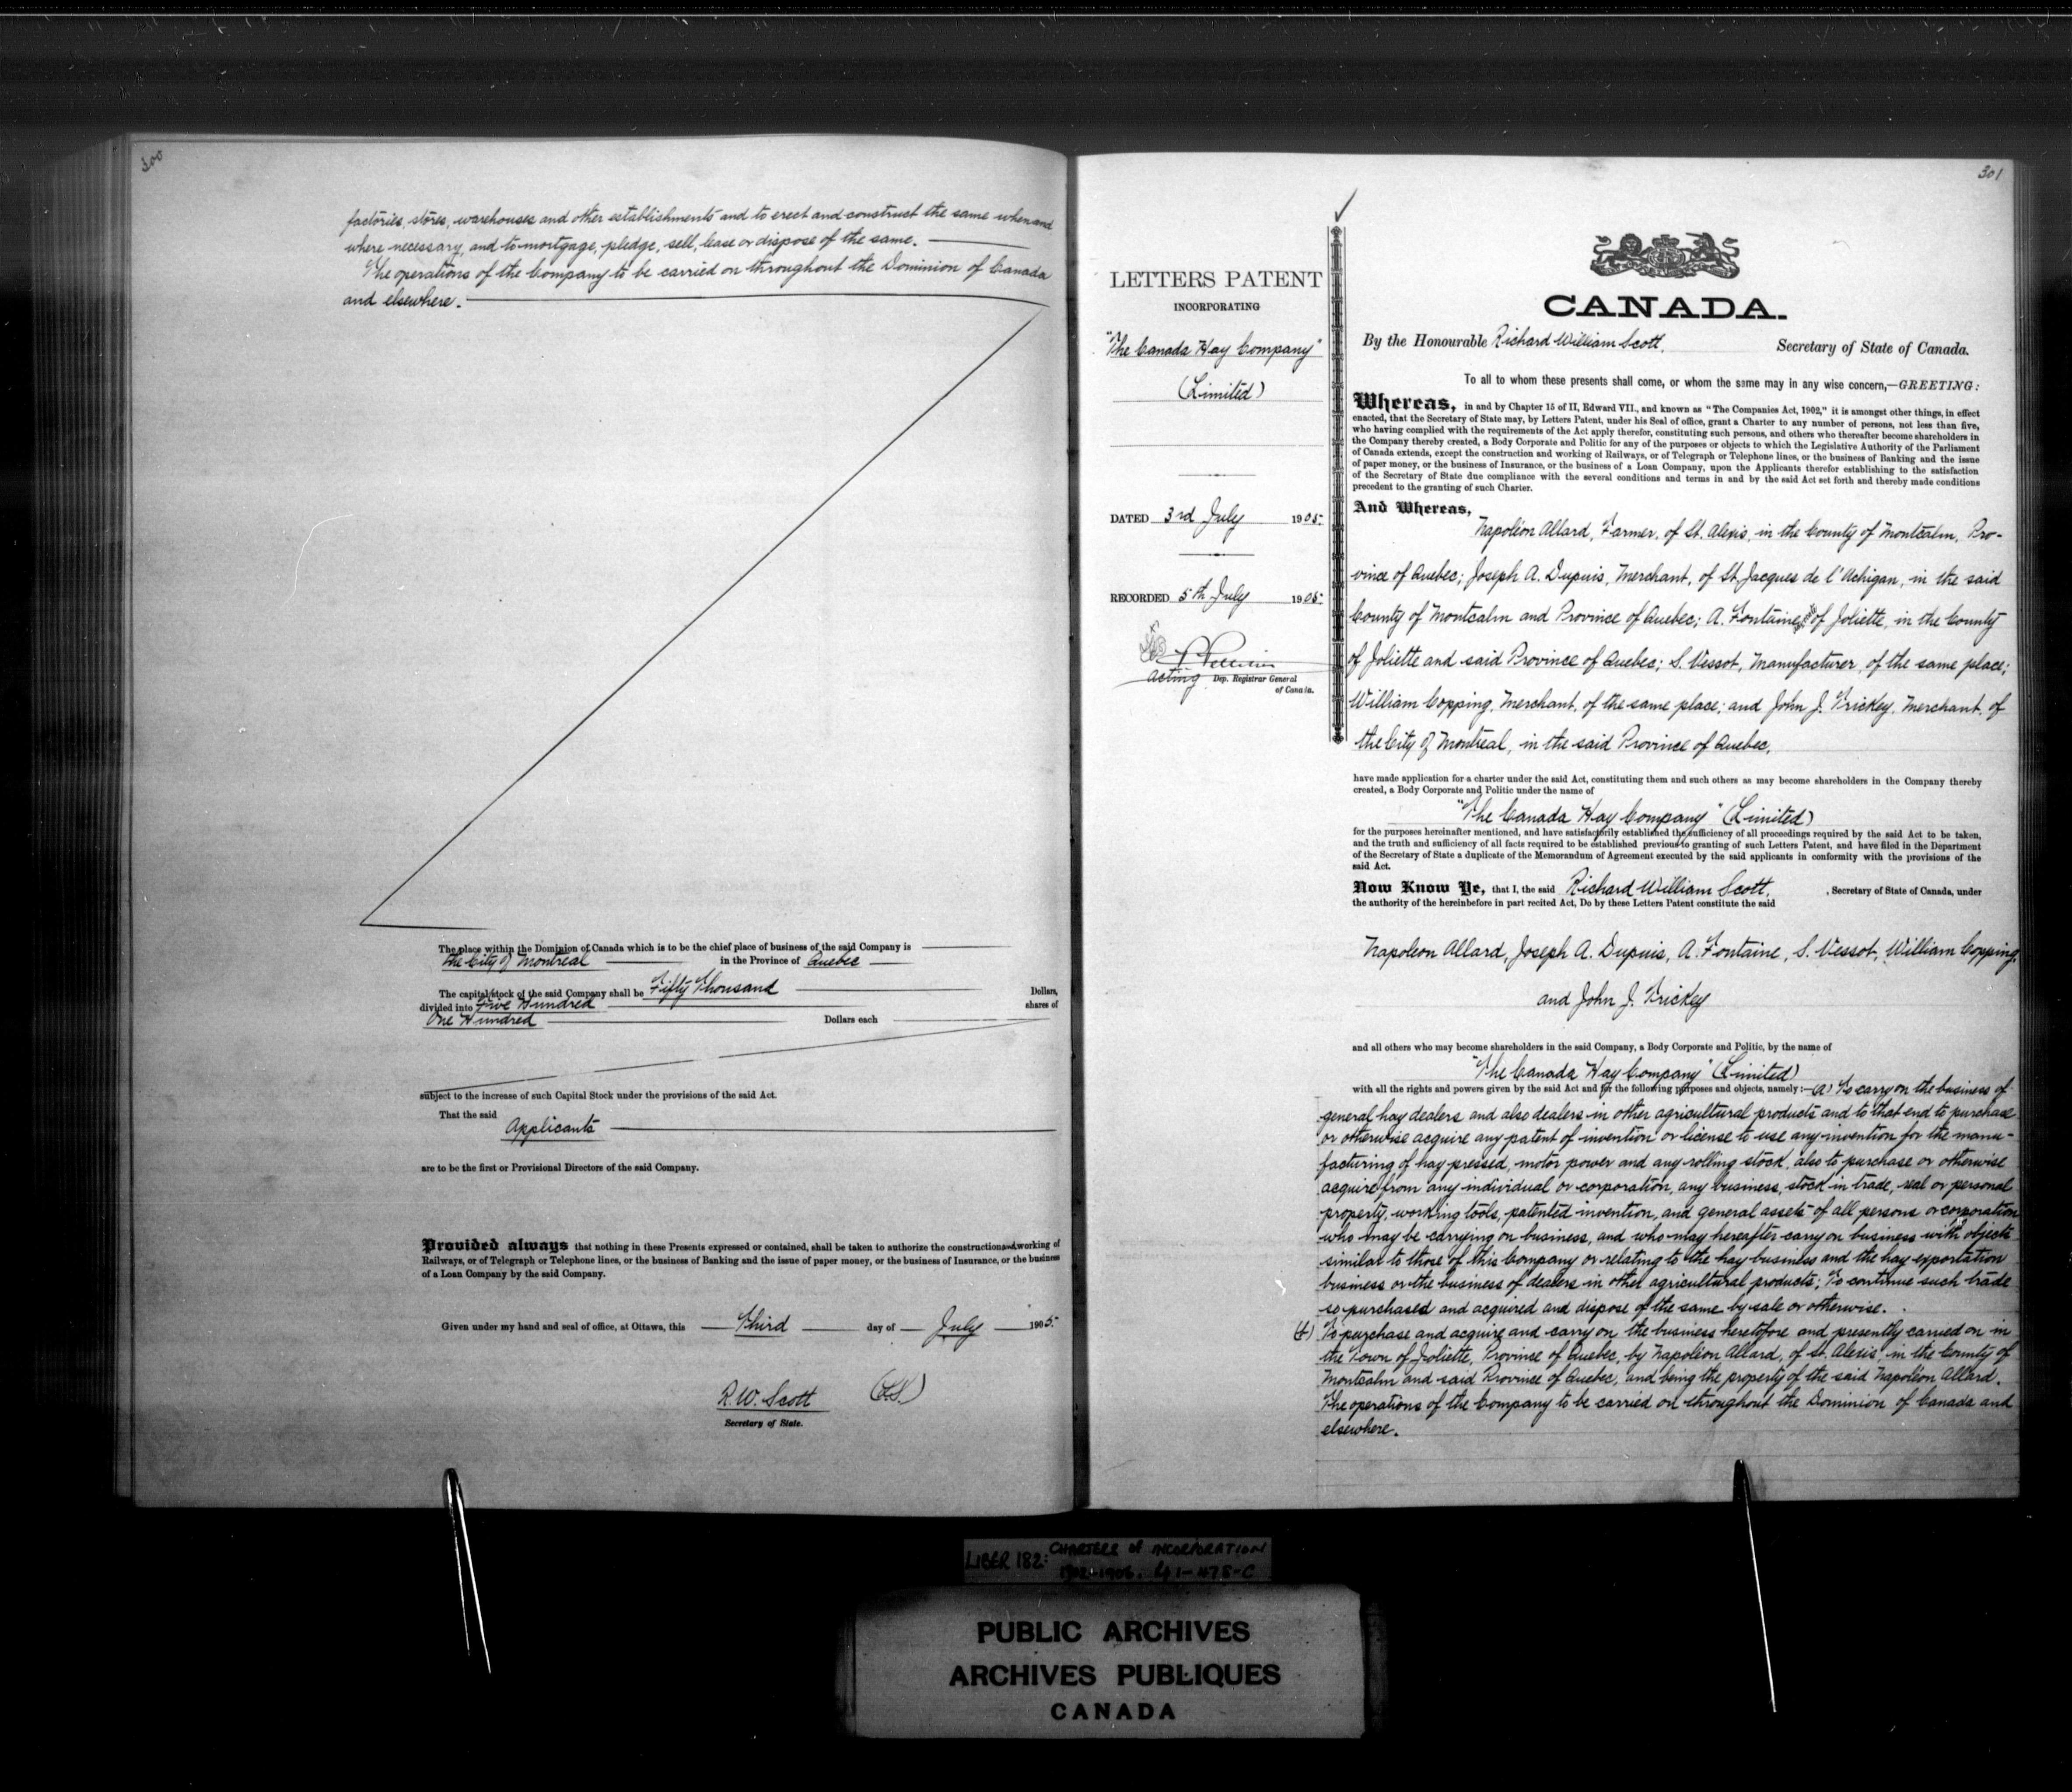 300
factories, stores, warehouses and other establishments and to erect and construct the same when and
where necessary, and to mortgage, pledge, sell, lease or dispose of the same.
The operations of the Company to be carried on throughout the Dominion of Canada
and elsewhere.
The place within the Dominion of Canada which is to be the chief place of business of the said Company is
the City of Montreal in the Province of Quebec
The capital stock of the said Company shall be Fifty Thousand Dollars,
divided into Five Hundred shares of
One Hundred Dollars each
subject to the increase of such Capital Stock under the provisions of the said Act.
That the said
Applicants
are to be the first or Provisional Directors of the said Company.
Provided always that nothing in these Presents expressed or contained, shall be taken to authorize the construction and working of
Railways, or of Telegraph or Telephone lines, or the business of Banking and the issue of paper money, or the business of Insurance, or the business
of a Loan Company by the said Company.
Given under my hand and seal of office, at Ottawa, this Third day of July 1905.
R.W. Scott (L.S.)
Secretary of State.
301
LETTERS PATENT
INCORPORATING
"The Canada Hay Company"
(Limited)
DATED 3rd July 1905.
RECORDED 5th July 1905.
acting Dep. Registrar General
of Canada.
CANADA.
By the Honourable Richard William Scott, Secretary of State of Canada.
To all to whom these presents shall come, or whom the same may in any wise concern,—GREETING:
Whereas, in and by Chapter 15 of II, Edward VII., and known as "The Companies Act, 1902," it is amongst other things, in effect
enacted, that the Secretary of State may, by Letters Patent, under his Seal of office, grant a Charter to any number of persons, not less than five,
who having complied with the requirements of the Act apply therefor, constituting such persons, and others who thereafter become shareholders in
the Company thereby created, a Body Corporate and Politic for any of the purposes or objects to which the Legislative Authority of the Parliament
of Canada extends, except the construction and working of Railways, or of Telegraph or Telephone lines, or the business of Banking and the issue
of paper money, or the business of Insurance, or the business of a Loan Company, upon the Applicants therefor establishing to the satisfaction
of the Secretary of State due compliance with the several conditions and terms in and by the said Act set forth and thereby made conditions
precedent to the granting of such Charter.
And Whereas,
Napoléon Allard, Farmer, of St. Alexis, in the County of Montcalm, Pro-
vince of Quebec; Joseph A. Dupuis, Merchant, of St Jacques de l'Achigan, in the said
County of Montcalm and Province of Quebec; A. Fontaine, of Joliette, in the County
of Joliette and said Province of Quebec; S. Vessot, Manufacturer, of the same place;
William Copping, Merchant, of the same place; and John J. Trickey, Merchant, of
the City of Montreal, in the said Province of Quebec,
have made application for a charter under the said Act, constituting them and such others as may become shareholders in the Company thereby
created, a Body Corporate and Politic under the name of
"The Canada Hay Company" (Limited)
for the purposes hereinafter mentioned, and have satisfactorily established the sufficiency of all proceedings required by the said Act to be taken,
and the truth and sufficiency of all facts required to be established previous to granting of such Letters Patent, and have filed in the Department
of the Secretary of State a duplicate of the Memorandum of Agreement executed by the said applicants in conformity with the provisions of the
said Act.
Now Know Ye, that I, the said Richard William Scott, , Secretary of State of Canada, under
the authority of the hereinbefore in part recited Act, Do by these Letters Patent constitute the said
Napoleon Allard, Joseph A. Dupuis, A. Fontaine, S. Vessot, William Copping,
and John J. Trickey
and all others who may become shareholders in the said Company, a Body Corporate and Politic, by the name of
"The Canada Hay Company" (Limited)
with all the rights and powers given by the said Act and for the following purposes and objects, namely:—(a) To carry on the business of
general hay dealers and also dealers in other agricultural products and to that end to purchase
or otherwise acquire any patent of invention or license to use any invention for the manu-
facturing of hay pressed, motor power and any rolling stock, also to purchase or otherwise
acquire from any individual or corporation, any business, stock in trade, real or personal
property, working tools, patented invention, and general assets of all persons or corporation
who may be carrying on business, and who may hereafter carry on business with objects
similar to those of this Company or relating to the hay business and the hay exportation
business or the business of dealers in other agricultural products; To continue such trade
so purchased and acquired and dispose of the same by sale or otherwise.
(b) To purchase and acquire and carry on the business heretofore and presently carried on in
the Town of Joliette, Province of Quebec, by Napoléon Allard, of St. Alexis, in the County of
Montcalm and said Province of Quebec, and being the property of the said Napoléon Allard.
The operations of the Company to be carried on throughout the Dominion of Canada and
elsewhere.
LIBER 182: CHARTERS OF INCORPORATION
PUBLIC ARCHIVES
ARCHIVES PUBLIQUES
CANADA